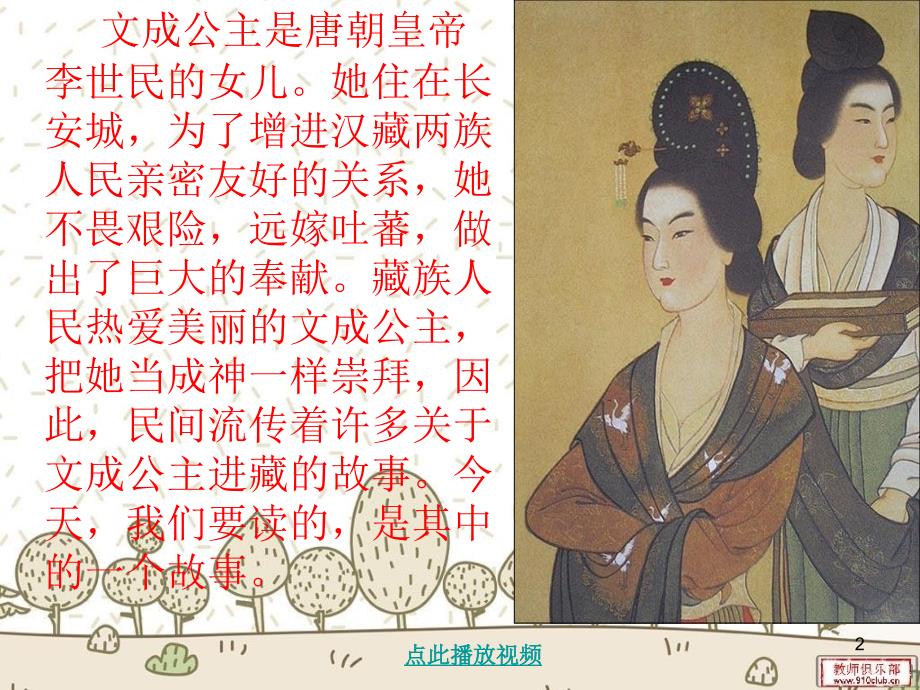 文成公主是唐朝皇帝
李世民的女儿。她住在长
安城，为了增进汉藏两族
人民亲密友好的关系，她
不畏艰险，远嫁吐蕃，做
出了巨大的奉献。藏族人
民热爱美丽的文成公主，
把她当成神一样崇拜，因
此，民间流传着许多关于
文成公主进藏的故事。今
天，我们要读的，是其中
的一个故事。
点此播放视频
2
教师俱乐部
www.910club.cn